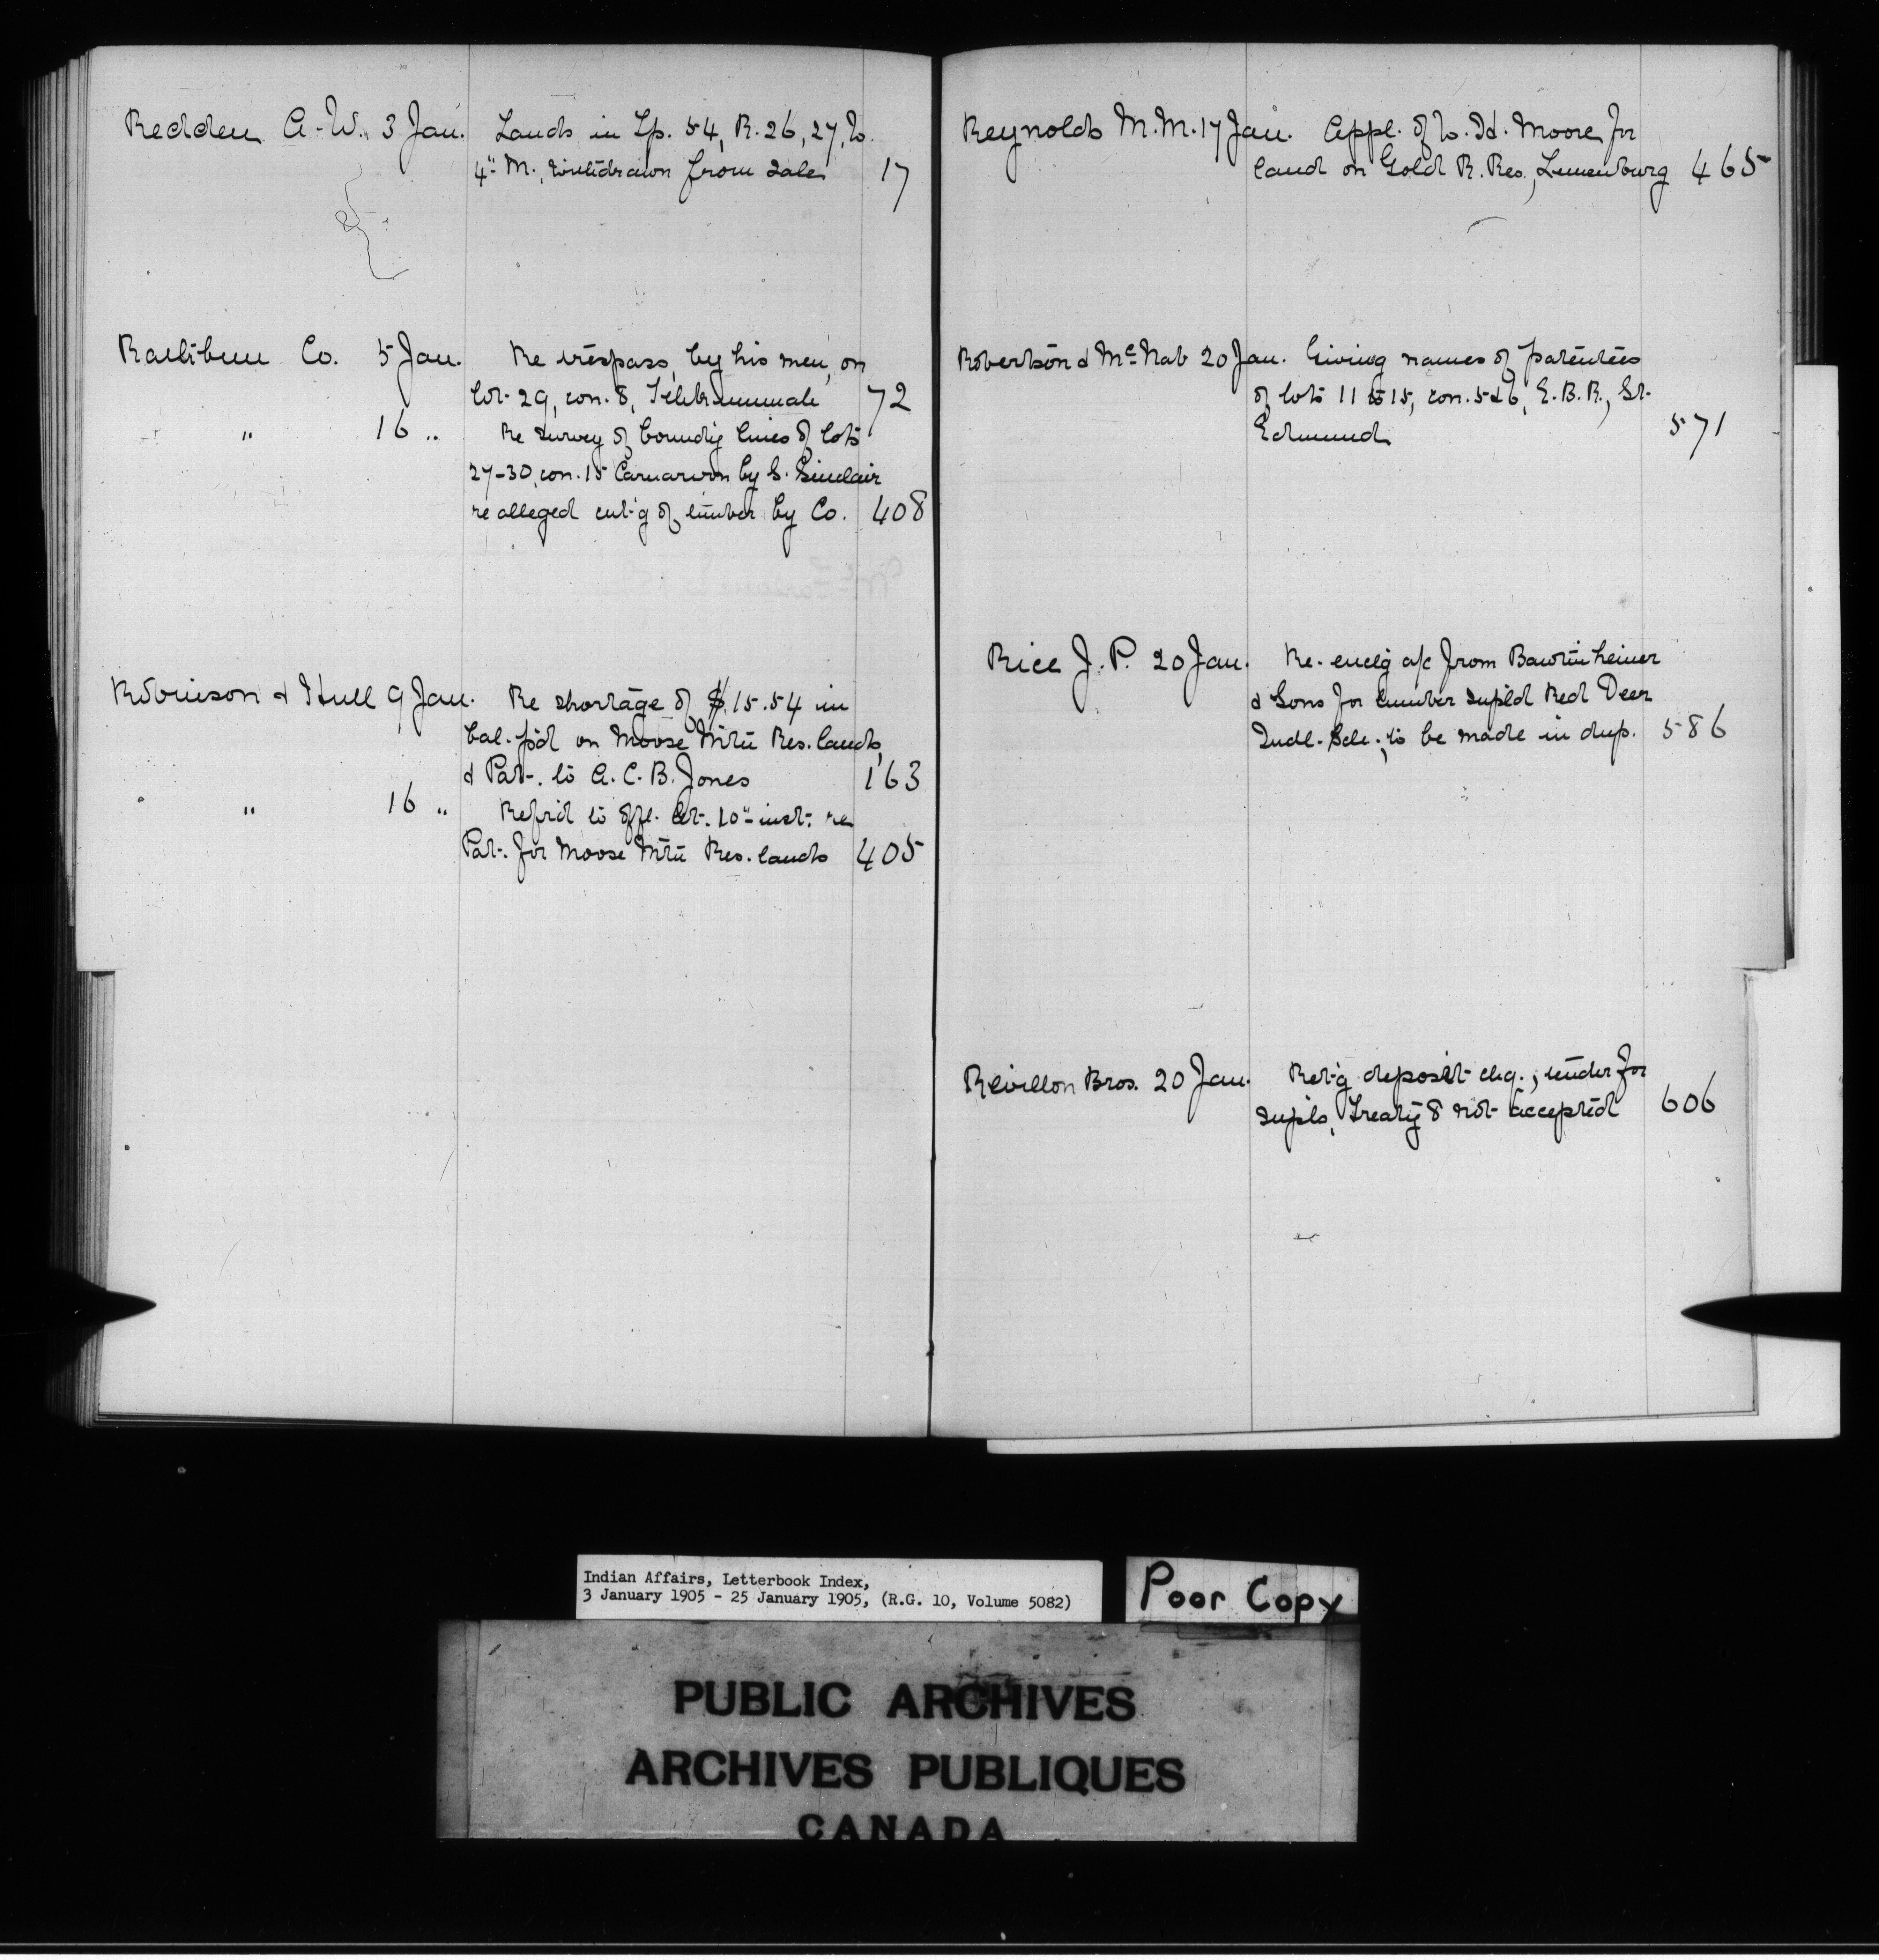 Redden A. W. 3 Jan. Lands in Tp. 54, R. 26, 27, W.
4" M., withdrawn from sale 17
Rathbun Co. 5 Jan. Re trespass, by his men, on
lot 29, con. 8, Tehkummah 72
" 16 " Re survey of boundig lines of lots
27-30, con. 15 Carnarvon by S. Sinclair
re alleged cut'g of timber by Co. 408
Robinson & Hull 9 Jan. Re shortage of $15.54 in
bal. p'd on Moose Mtn Res. lands,
& Pat. to A. C. B. Jones 163
" 16 " Ref'rd to offl. let. 10" inst. re
Pat. for Moose Mtn Res. lands 405
Reynolds M. M. 17 Jan. Appl. of W. H. Moore for
land on Gold R. Res., Lunenburg 465
Robertson & McNab 20 Jan. Giving names of patentees
of lots 11 to 15, con. 5 & 6, E. B. R., St.
Edmund 571
Rice J. P. 20 Jan. Re enclg a/c from
& Sons for lumber supl'd Red Deer
Indl. Scle.; to be made in dup. 586
Revillon Bros. 20 Jan. Ret'g deposit chq.; tender for
supls, Treaty 8 not accepted 606
Indian Affairs, Letterbook Index,
3 January 1905 - 25 January 1905, (R.G. 10, Volume 5082)
Poor Copy
PUBLIC ARCHIVES
ARCHIVES PUBLIQUES
CANADA